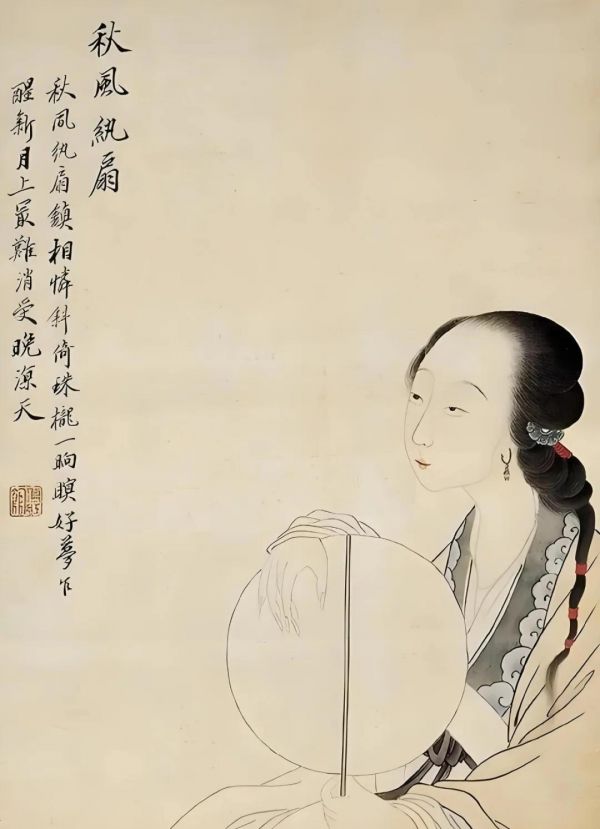 秋風紈扇
秋凬紈扇鎮相憐斜倚珠櫳一晌瞑好夢乍
醒新月上最難消受晚涼天